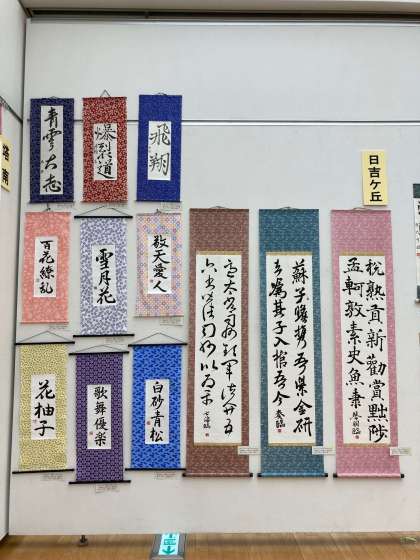 塔南
青雲大志
爆裂道
飛翔
日吉ケ丘
百花繚乱
雪月花
敬天愛人
花柚子
歌舞優楽
白砂青松
税熟貢新勸賞黜陟
孟軻敦素史魚秉
蘇子瞻携吾紫金研
去嘱其子入棺吾今